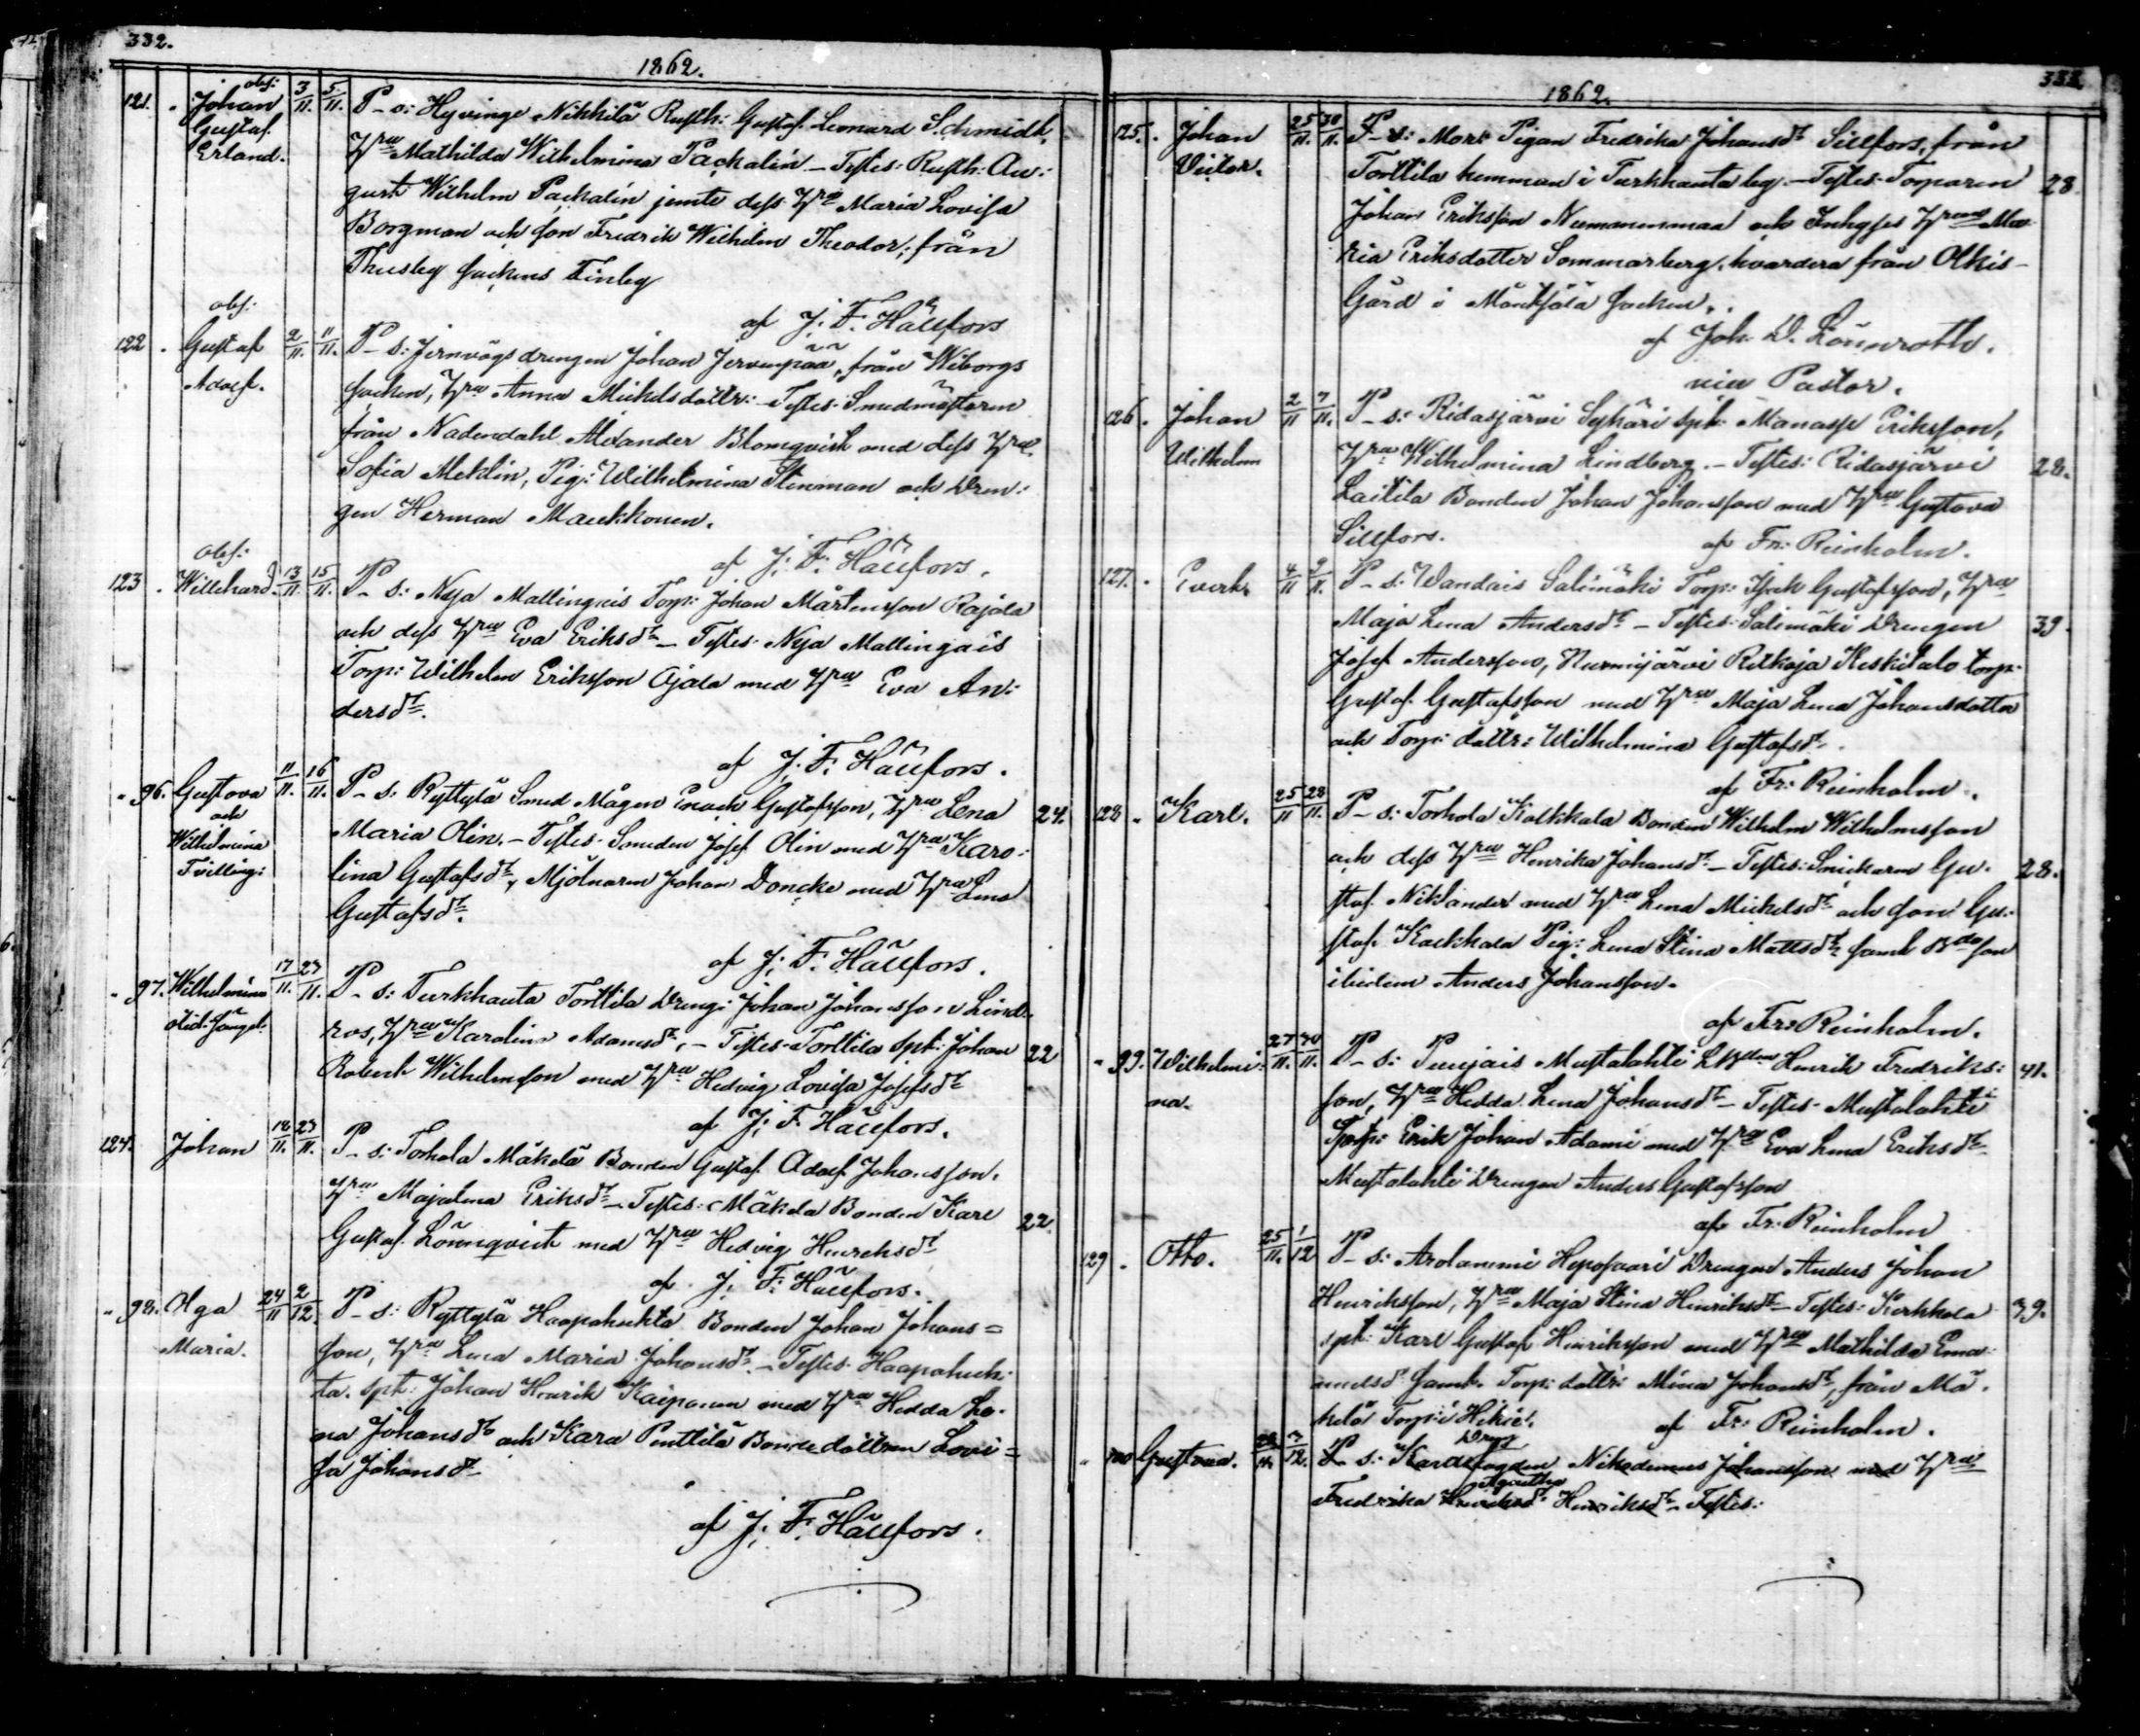 332.
1862.
121. Johan obs: 3/11. 5/11. P-s: Hyvinge Nikkilä Rusth: Gustaf Leonard Schmidt,
Gustaf Hru Mathilda Wilhelmina Pachalin – Testes: Rusth: Au:
Erland. gust Wilhelm Pachalin jemte dess Hru Maria Lovisa
Borgman och son Fredrik Wilhelm Theodor, från
Thusby sockens Finby
af J. F. Hällfors
obs:
122. Gustaf 2/11. 11/11. P-s: Jernvägsdrengen Johan Jervenpää, från Wiborgs
Adolf. socken, Hru Anna Mickelsdottr: – Testes: Smedmästaren
från Nådendahl Alexander Blomqvist med dess Hru
Sofia Meklin, Pig: Wilhelmina Stenman och Dren:
gen Herman Maukkonen.
af J. F. Hällfors.
obs:
123. Willehard 13/11. 15/11. P-s: Nya Mallinginis Torp: Johan Mårtensson Rajala
och dess Hru Eva Eriksdr – Testes: Nya Mallingais
Torp: Wilhelm Eriksson Ojala med Hru Eva An:
dersdr.
af J. F. Hällfors.
" 96. Gustava 11/11. 16/11. P-s: Ryttylä Smed Mågen Enoch Gustafsson, Hru Lena 24.
och Maria Olin. – Testes: Smeden Josef Olin med Hru Karo:
Wilhelmina lina Gustafsdr, Mjölnaren Johan Doncke med Hru Lena
Tvilling: Gustafsdr.
af J. F. Hällfors.
" 97. Wilhelmina 17/11. 23/11. P-s: Turkhauta Torttila Dreng: Johan Johansson Lind:
ros, Hru Karolina Adamsdr, – Testes: Torttila spk: Johan 22
Robert Wilhelmsson med Hru Hedvig Lovisa Josefsdr
af J. F. Hällfors.
124. Johan 18/11. 23/11. P-s: Torhola Mäkelä Bonden Gustaf Adolf Johansson,
Hru Majalena Eriksdr – Testes: Mäkelä Bonden Karl 22.
Gustaf Lönnqvist med Hru Hedvig Henrichsdr
af J. F. Hällfors.
" 98. Olga 24/11 2/12. P-s: Ryttylä Haapahuhta Bonden Johan Johans=
Maria. son, Hru Lena Maria Johansdr – Testes: Haapahuh:
ta spk: Johan Henrik Kaiponen med Hru Hedda Le-
na Johansdr och Kara Penttilä Bondedottren Lovi=
sa Johansdr
af J. F. Hällfors.
333.
1862.
125. Johan 25/11. 30/11. P-s: Mor: Pigan Fredrika Johansdr Sillfors, från
Victor. Torttila hemman i Turkhauta by. – Testes: Torparen 28.
Johan Eriksson Nummenmaa och Inhyses Hruns Ma-
ria Eriksdotter Sommarberg, hvardera från Olkis
Gård i Mäntsälä socken.
af Joh. D. Lönnroth.
vice Pastor.
126. Johan 2/11 7/11. P-s: Ridasjärvi Syhäri spk: Manasse Eriksson,
Wilhelm Hru Wilhelmina Lindberg. – Testes: Ridasjärvi 28.
Laitila Bonden Johan Johansson med Hru Gustava
Sillfors. af Fr: Reinholm.
127. Evert. 4/11 9/11. P-s: Wandais Salimäki Torp: Isak Gustafsson, Hru
Maja Lena Andersdr – Testes: Salimäki Drengen 39.
Josef Andersson, Nurmijärvi Ritkoja Keskitalo torp:
Gustaf Gustafsson med Hru Maja Lena Johansdotter
och Torp: dottr: Wilhelmina Gustafsdr.
af Fr: Reinholm.
128. Karl. 25/11 28/11. P-s: Torhola Kolkkala Bonden Wilhelm Wilhelmsson
och dess Hru Henrika Johansdr – Testes: Snickaren Gu- 28.
staf Niklander med Hru Lena Mickelsdr och son Gu-
staf Kolkkala Pig: Lena Stina Mattsdr samt Bde son
ibidem Anders Johansson.
af Fr: Reinholm.
" 99. Wilhelmi- 27/11. 30/11. P-s: Puujais Mustalahti Henrik Fredriks: 41.
na. son, Hru Hedda Lena Johansdr – Testes: Mustalahti
Torp: Erik Johan Adami med Hru Eva Lena Eriksdr
Mustalahti Drengen Anders Gustafsson
af Fr: Reinholm
129. Otto. 25/11. 1/12 P-s: Arolammi Heposaari Drengen Anders Johan
Henriksson, Hru Maja Stina Henriksdr – Testes: Kerkkola 39.
spk: Karl Gustaf Henriksson med Hru Mathilda Ema-
nuelsdr samt Torp: dottr: Mina Johansdr, från Mä-
kelä Torp i Hikiä. af Fr: Reinholm.
" 100 Gustava. 28/11. 7/12. P-s: Nikodemus Johansson med Hru
Fredrika Agatha Henriksdr – Testes: